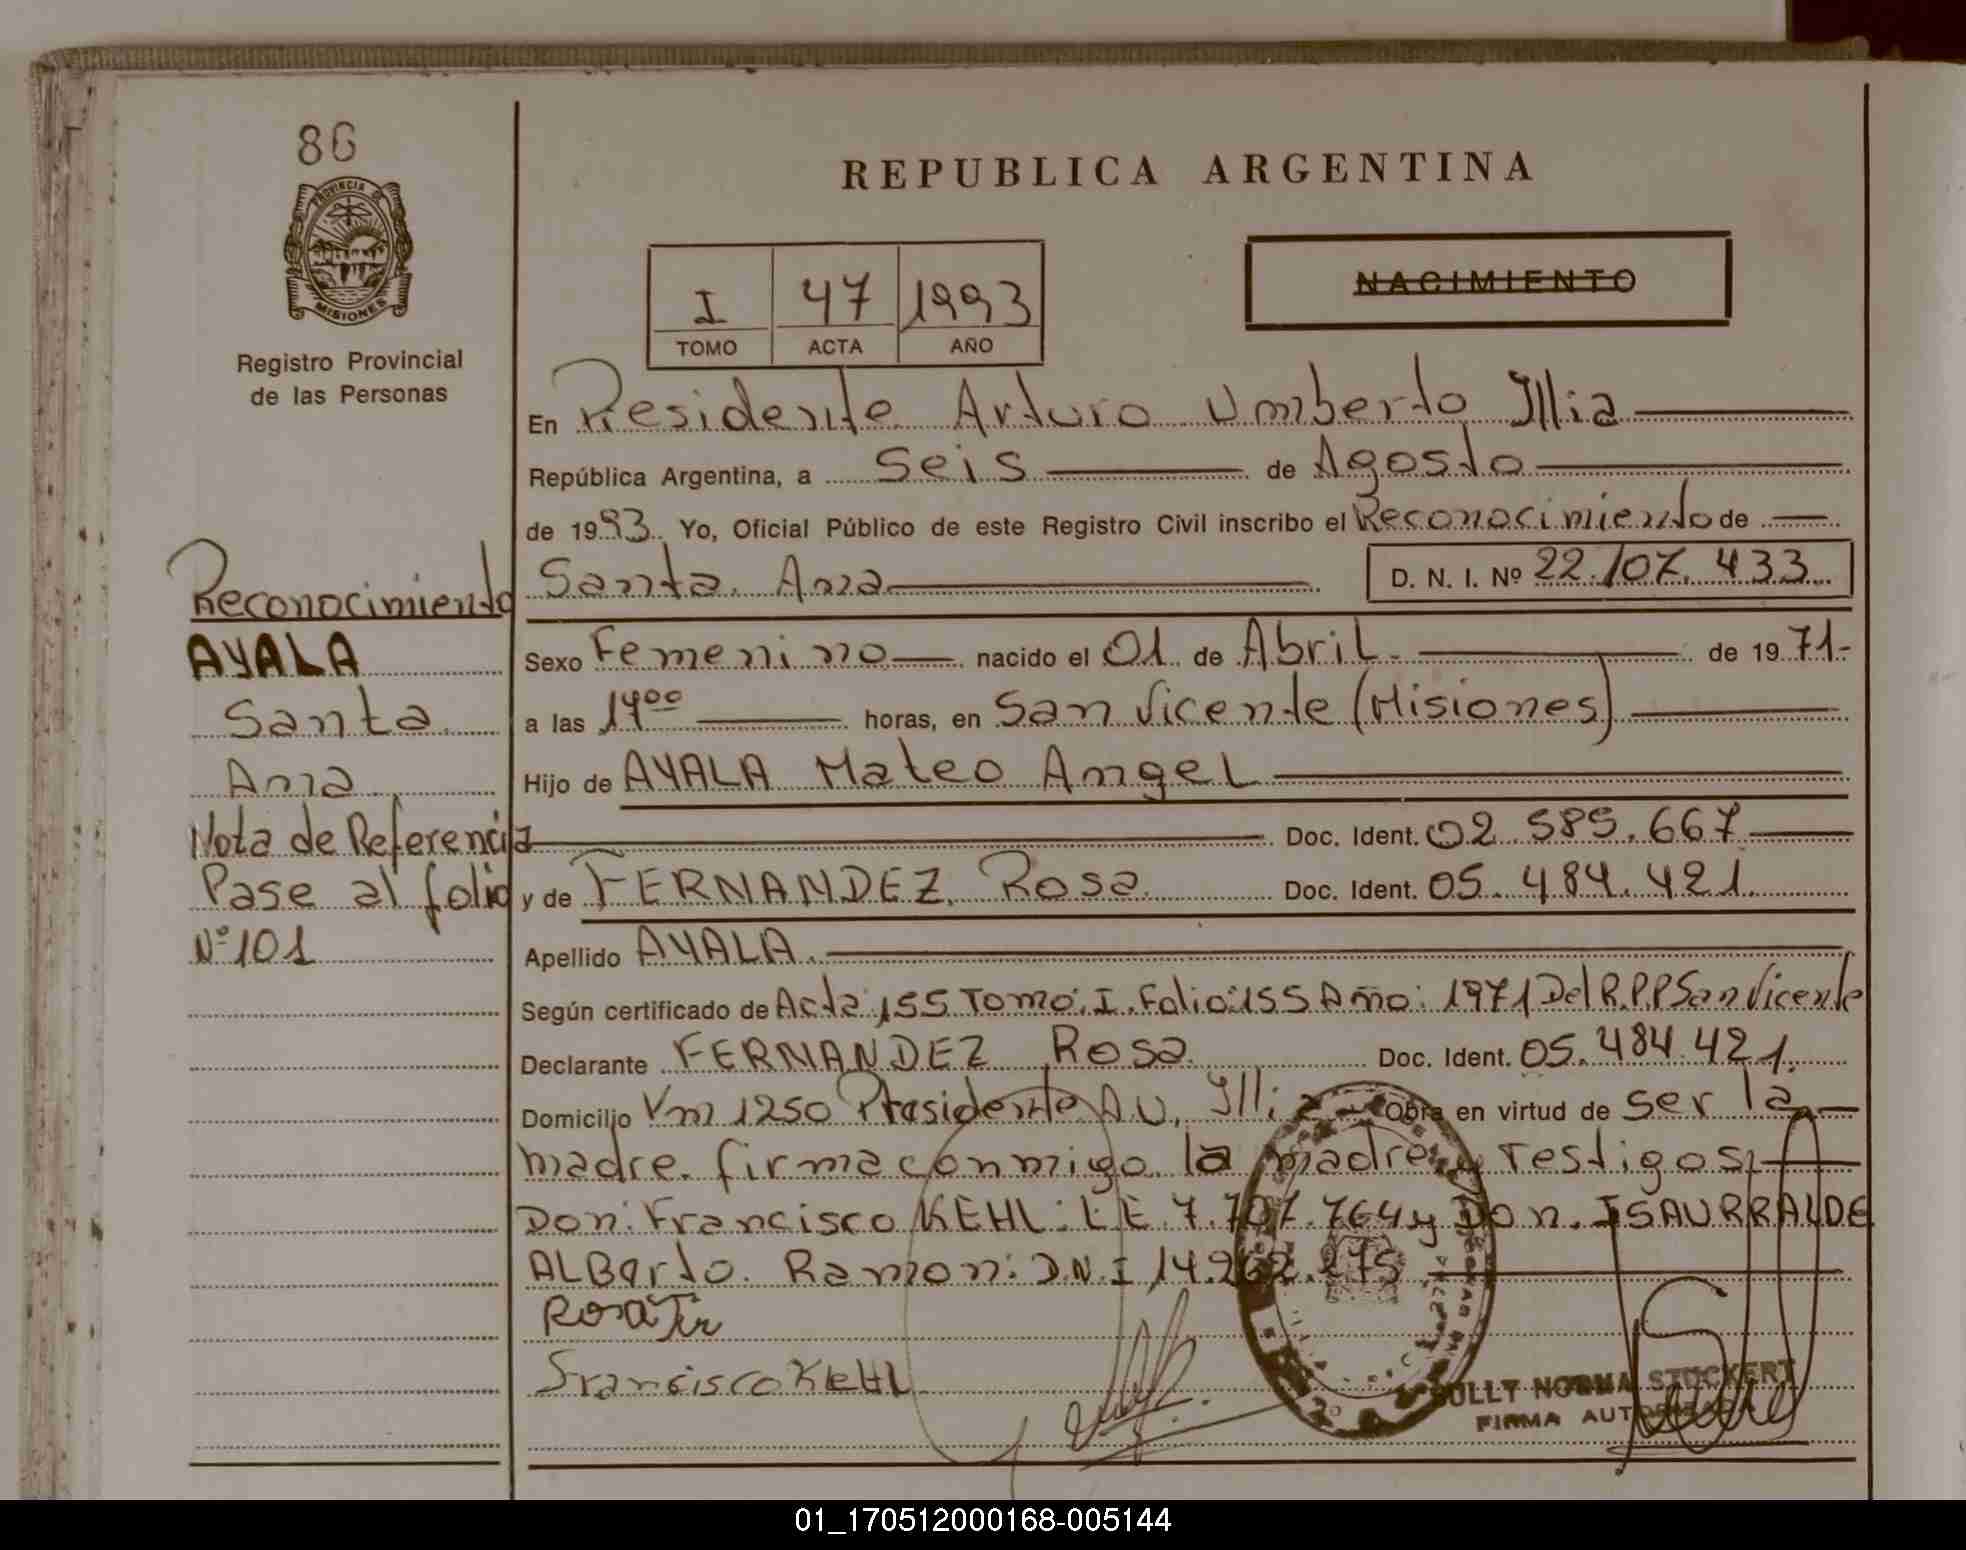 86
REPUBLICA ARGENTINA
PROVINCIA DE
MISIONES
Registro Provincial
de las Personas
I 47 1993
TOMO ACTA AÑO
NACIMIENTO
En Presidente Arturo Umberto Illia
República Argentina, a Seis de Agosto
de 1993. Yo, Oficial Público de este Registro Civil inscribo el Reconocimiento de
Santa Ana D. N. I. Nº 22.107.433
Sexo Femenino nacido el 01 de Abril de 1971-
a las 14⁰⁰ horas, en San Vicente (Misiones)
Hijo de AYALA Mateo Angel
Doc. Ident. 02.585.667
y de FERNANDEZ Rosa Doc. Ident. 05.484.421
Apellido AYALA
Según certificado de Acta: 155 Tomo: I. Folio: 155 Año: 1971 Del R.P.P San Vicente
Declarante FERNANDEZ Rosa Doc. Ident. 05.484.421
Domicilio Vm 1250 Presidente A.U. Illia Obra en virtud de ser la
madre. firma conmigo la madre y Testigos
Don: Francisco KEHL: LE 7.707.764 y Don. ISAURRALDE
ALBerto. Ramon: D.N.I 14.262.275
Rosa
Francisco KEHL
NORMA STUCKERT
FIRMA AUTORIZADA
Reconocimiento
AYALA
Santa
Ana
Nota de Referencia
Pase al folio
Nº 101
01_170512000168-005144